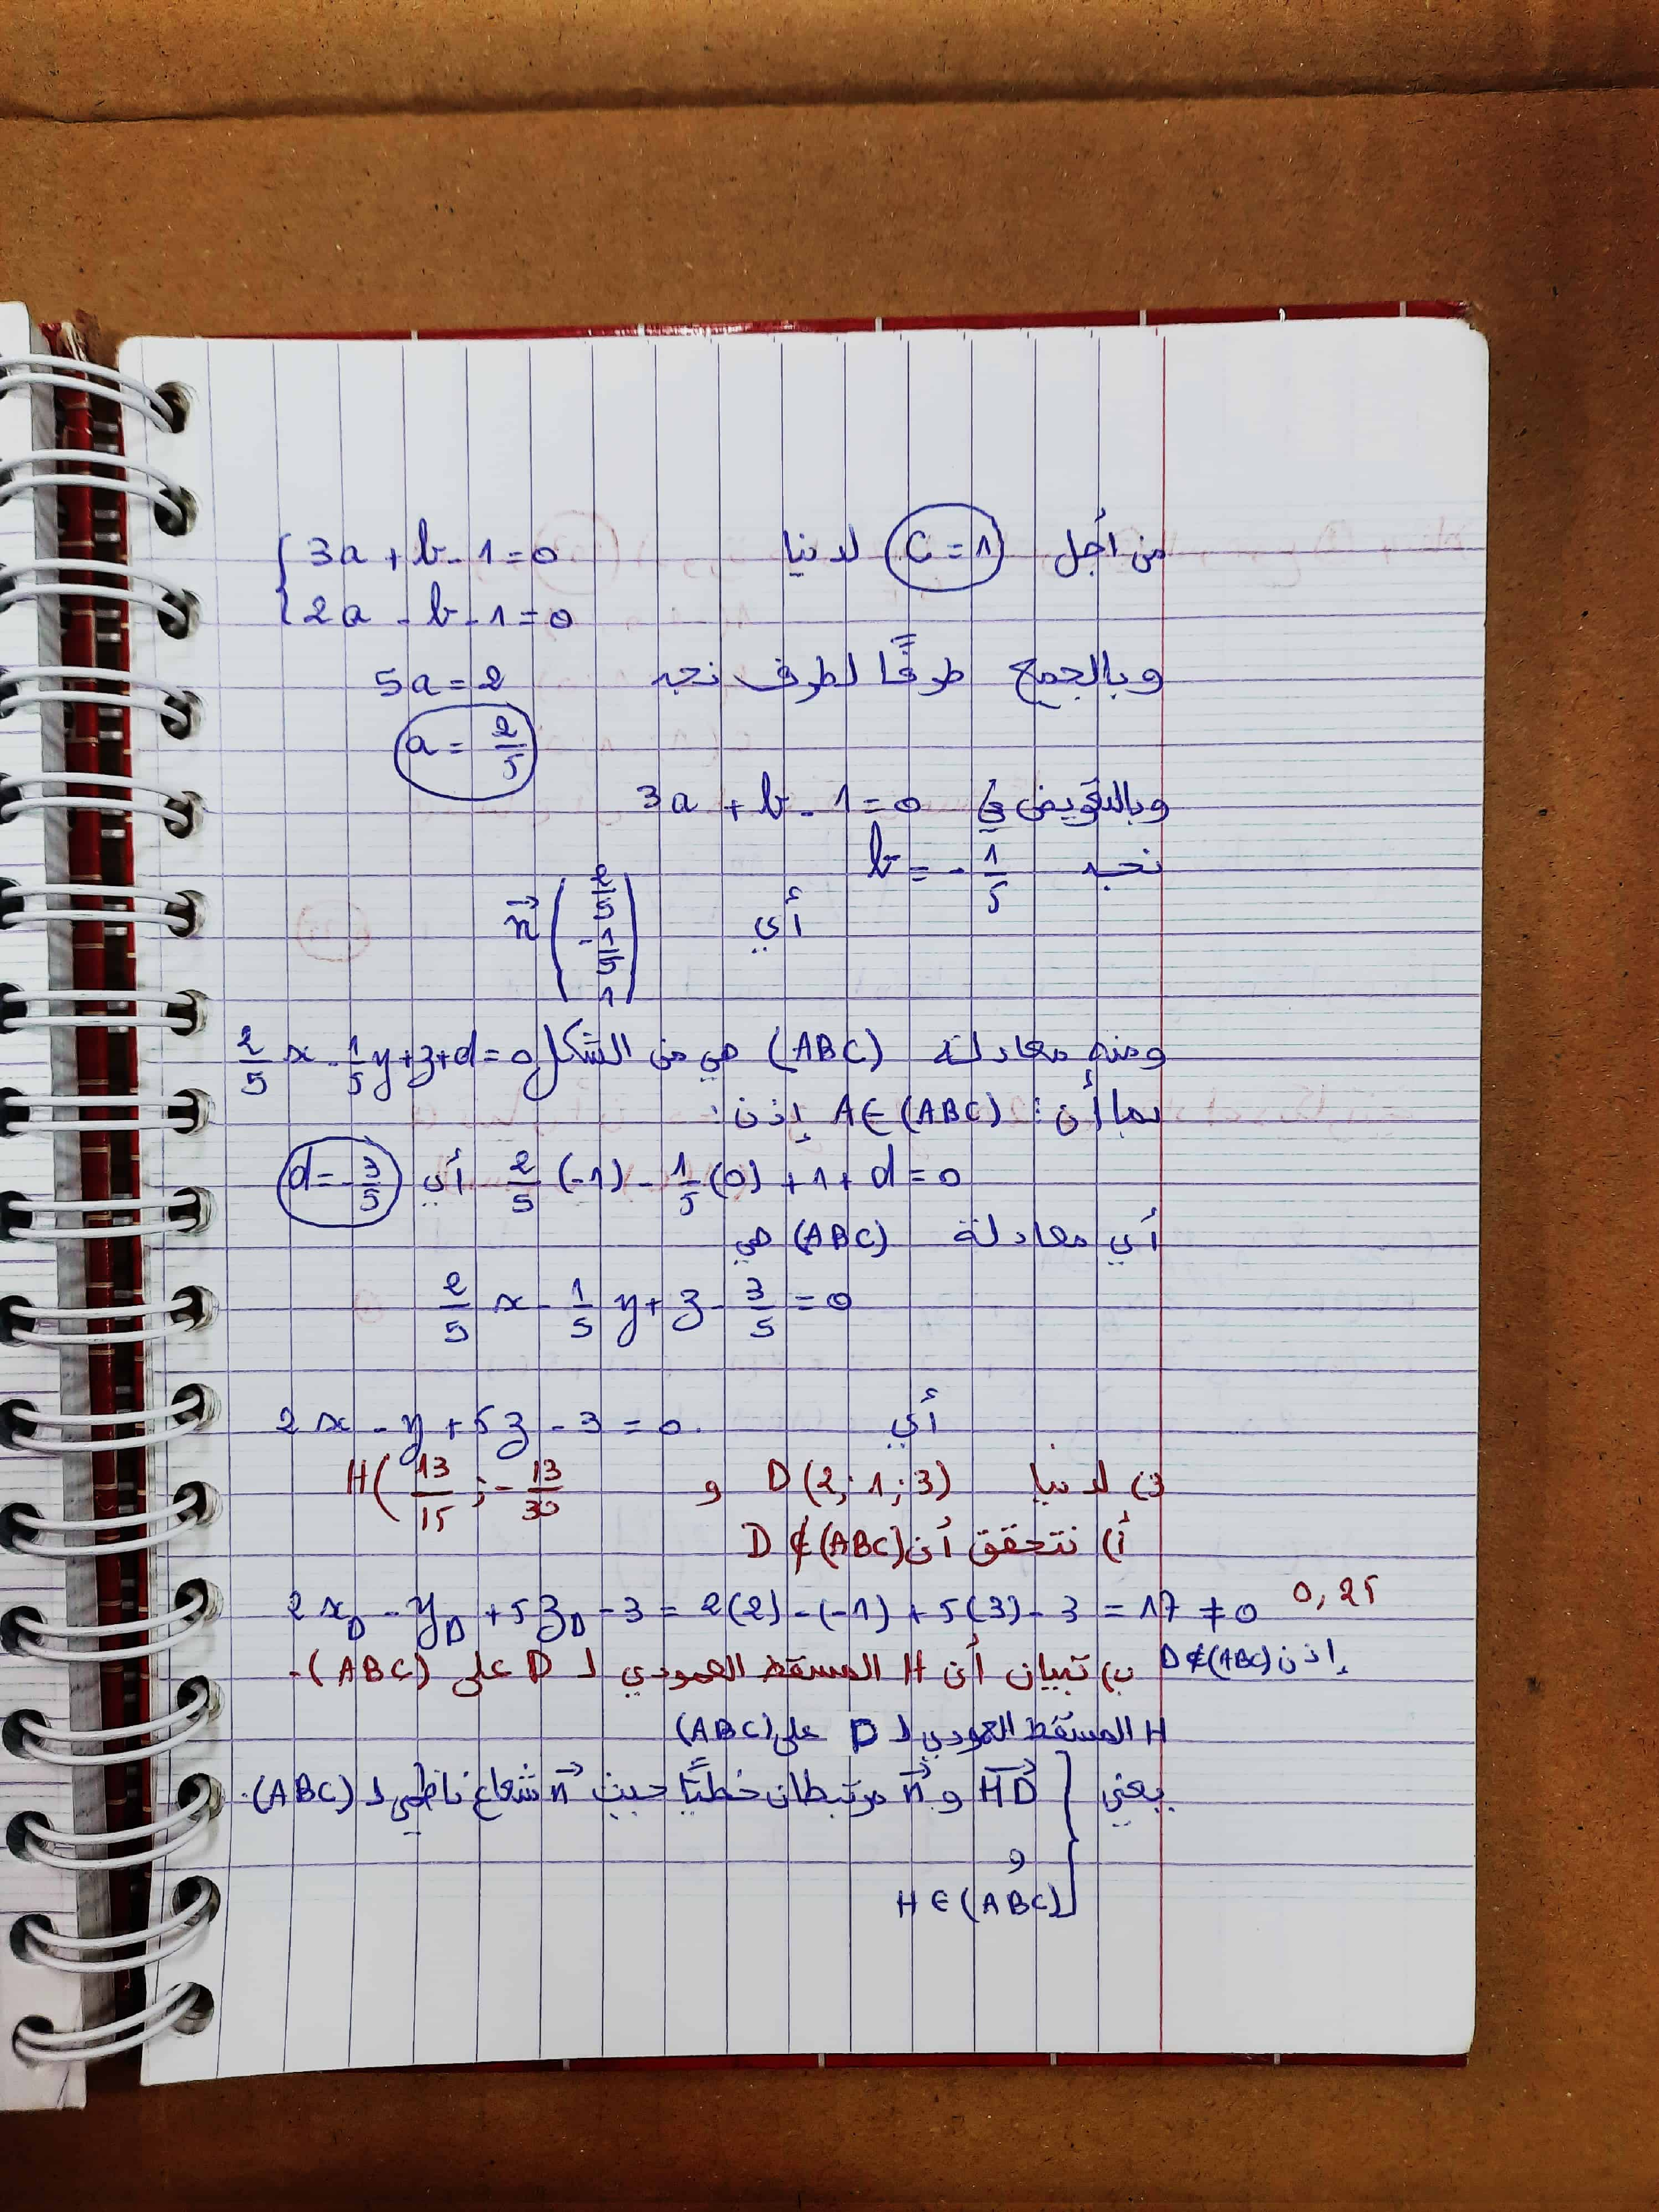 من أجل c = 1 لدينا { 3a + b - 1 = 0
2a - b - 1 = 0
وبالجمع طرفًا لطرف نجد 5a = 2
a = 2/5
وبالتعويض في 3a + b - 1 = 0
نجد b = - 1/5
أي n⃗ (2/5 ; -1/5 ; 1)
ومنه معادلة (ABC) هي من الشكل 2/5 x - 1/5 y + z + d = 0
بما أن : A ∈ (ABC) إذن :
2/5 (-1) - 1/5 (0) + 1 + d = 0 أي d = - 3/5
أي معادلة (ABC) هي
2/5 x - 1/5 y + z - 3/5 = 0
أي 2x - y + 5z - 3 = 0.
3) لدينا D(2 ; 1 ; 3) و H( 13/15 ; - 13/30
أ) نتحقق أن D ∉ (ABC)
0,25 2x_D - y_D + 5z_D - 3 = 2(2) - (-1) + 5(3) - 3 = 17 ≠ 0
إذن D ∉ (ABC)
ب) تبيان أن H المسقط العمودي لـ D على (ABC).
H المسقط العمودي لـ D على (ABC)
يعني HD⃗ و n⃗ مرتبطان خطيًّا حيث n⃗ شعاع ناظمي لـ (ABC).
و
H ∈ (ABC)